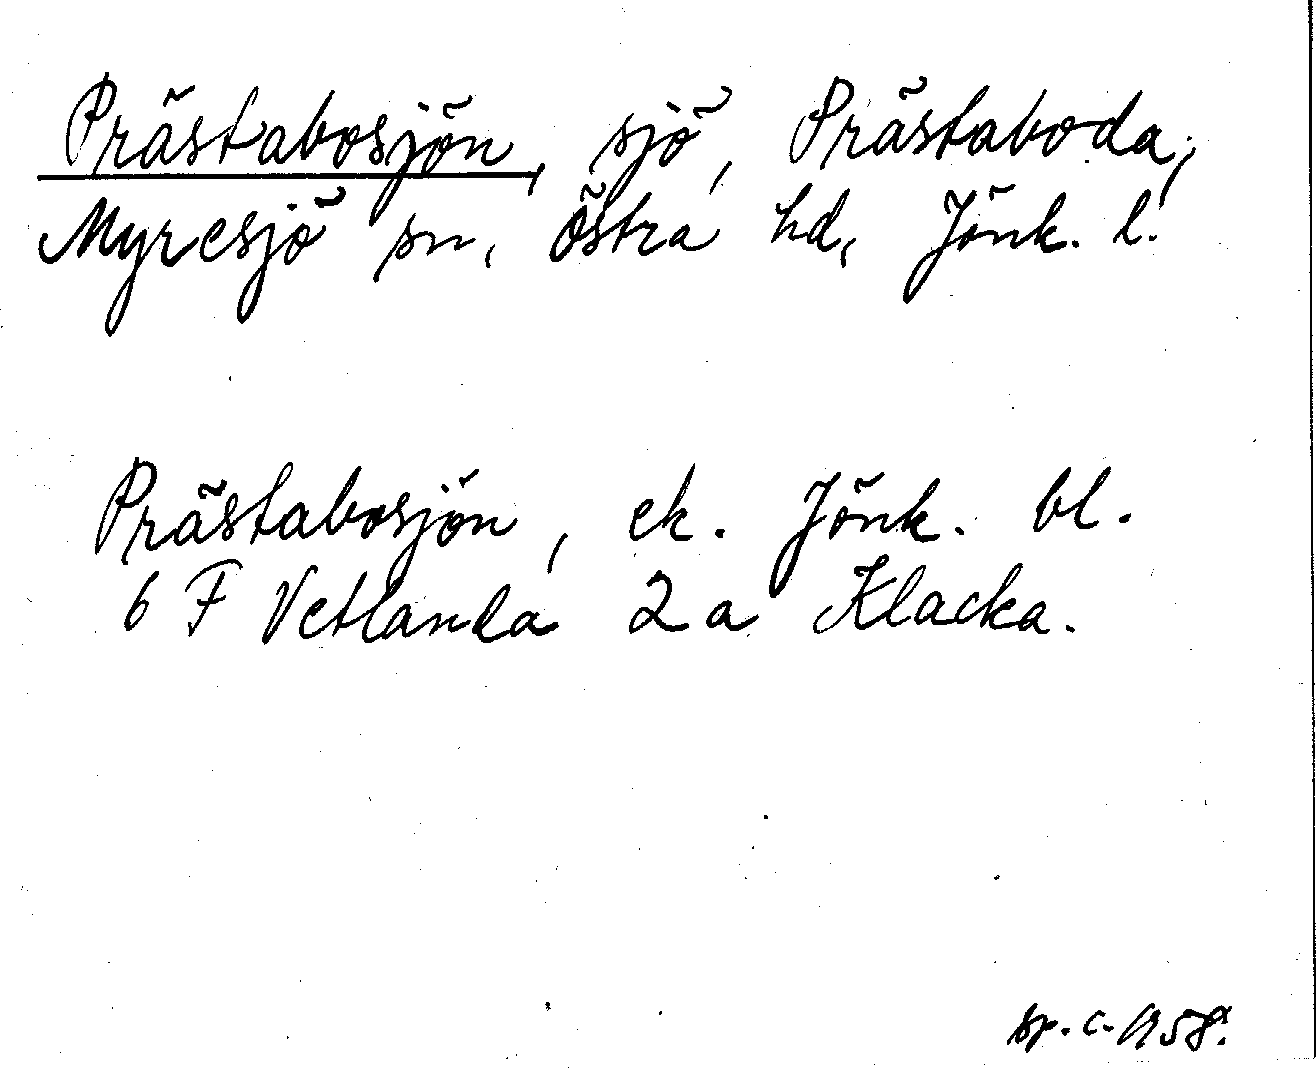 Prästabosjön, sjö, Prästaboda,
Myresjö sn, Östra hd, Jönk. l.
Prästabosjön, ek. Jönk. bl.
6 F Vetlanda 2 a Klacka.
sp. c. 1958.